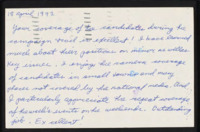 18 April 1992
Your coverage of the candidates during the
campaign trail is excellent! I have learned
much about their positions on labor as other
key issues. I enjoy the camera coverage
of candidates in small towns and many
places not covered by the national media. And,
I particularly appreciate the repeat coverage
of events on the weekends. Outstanding
job. Excellent!